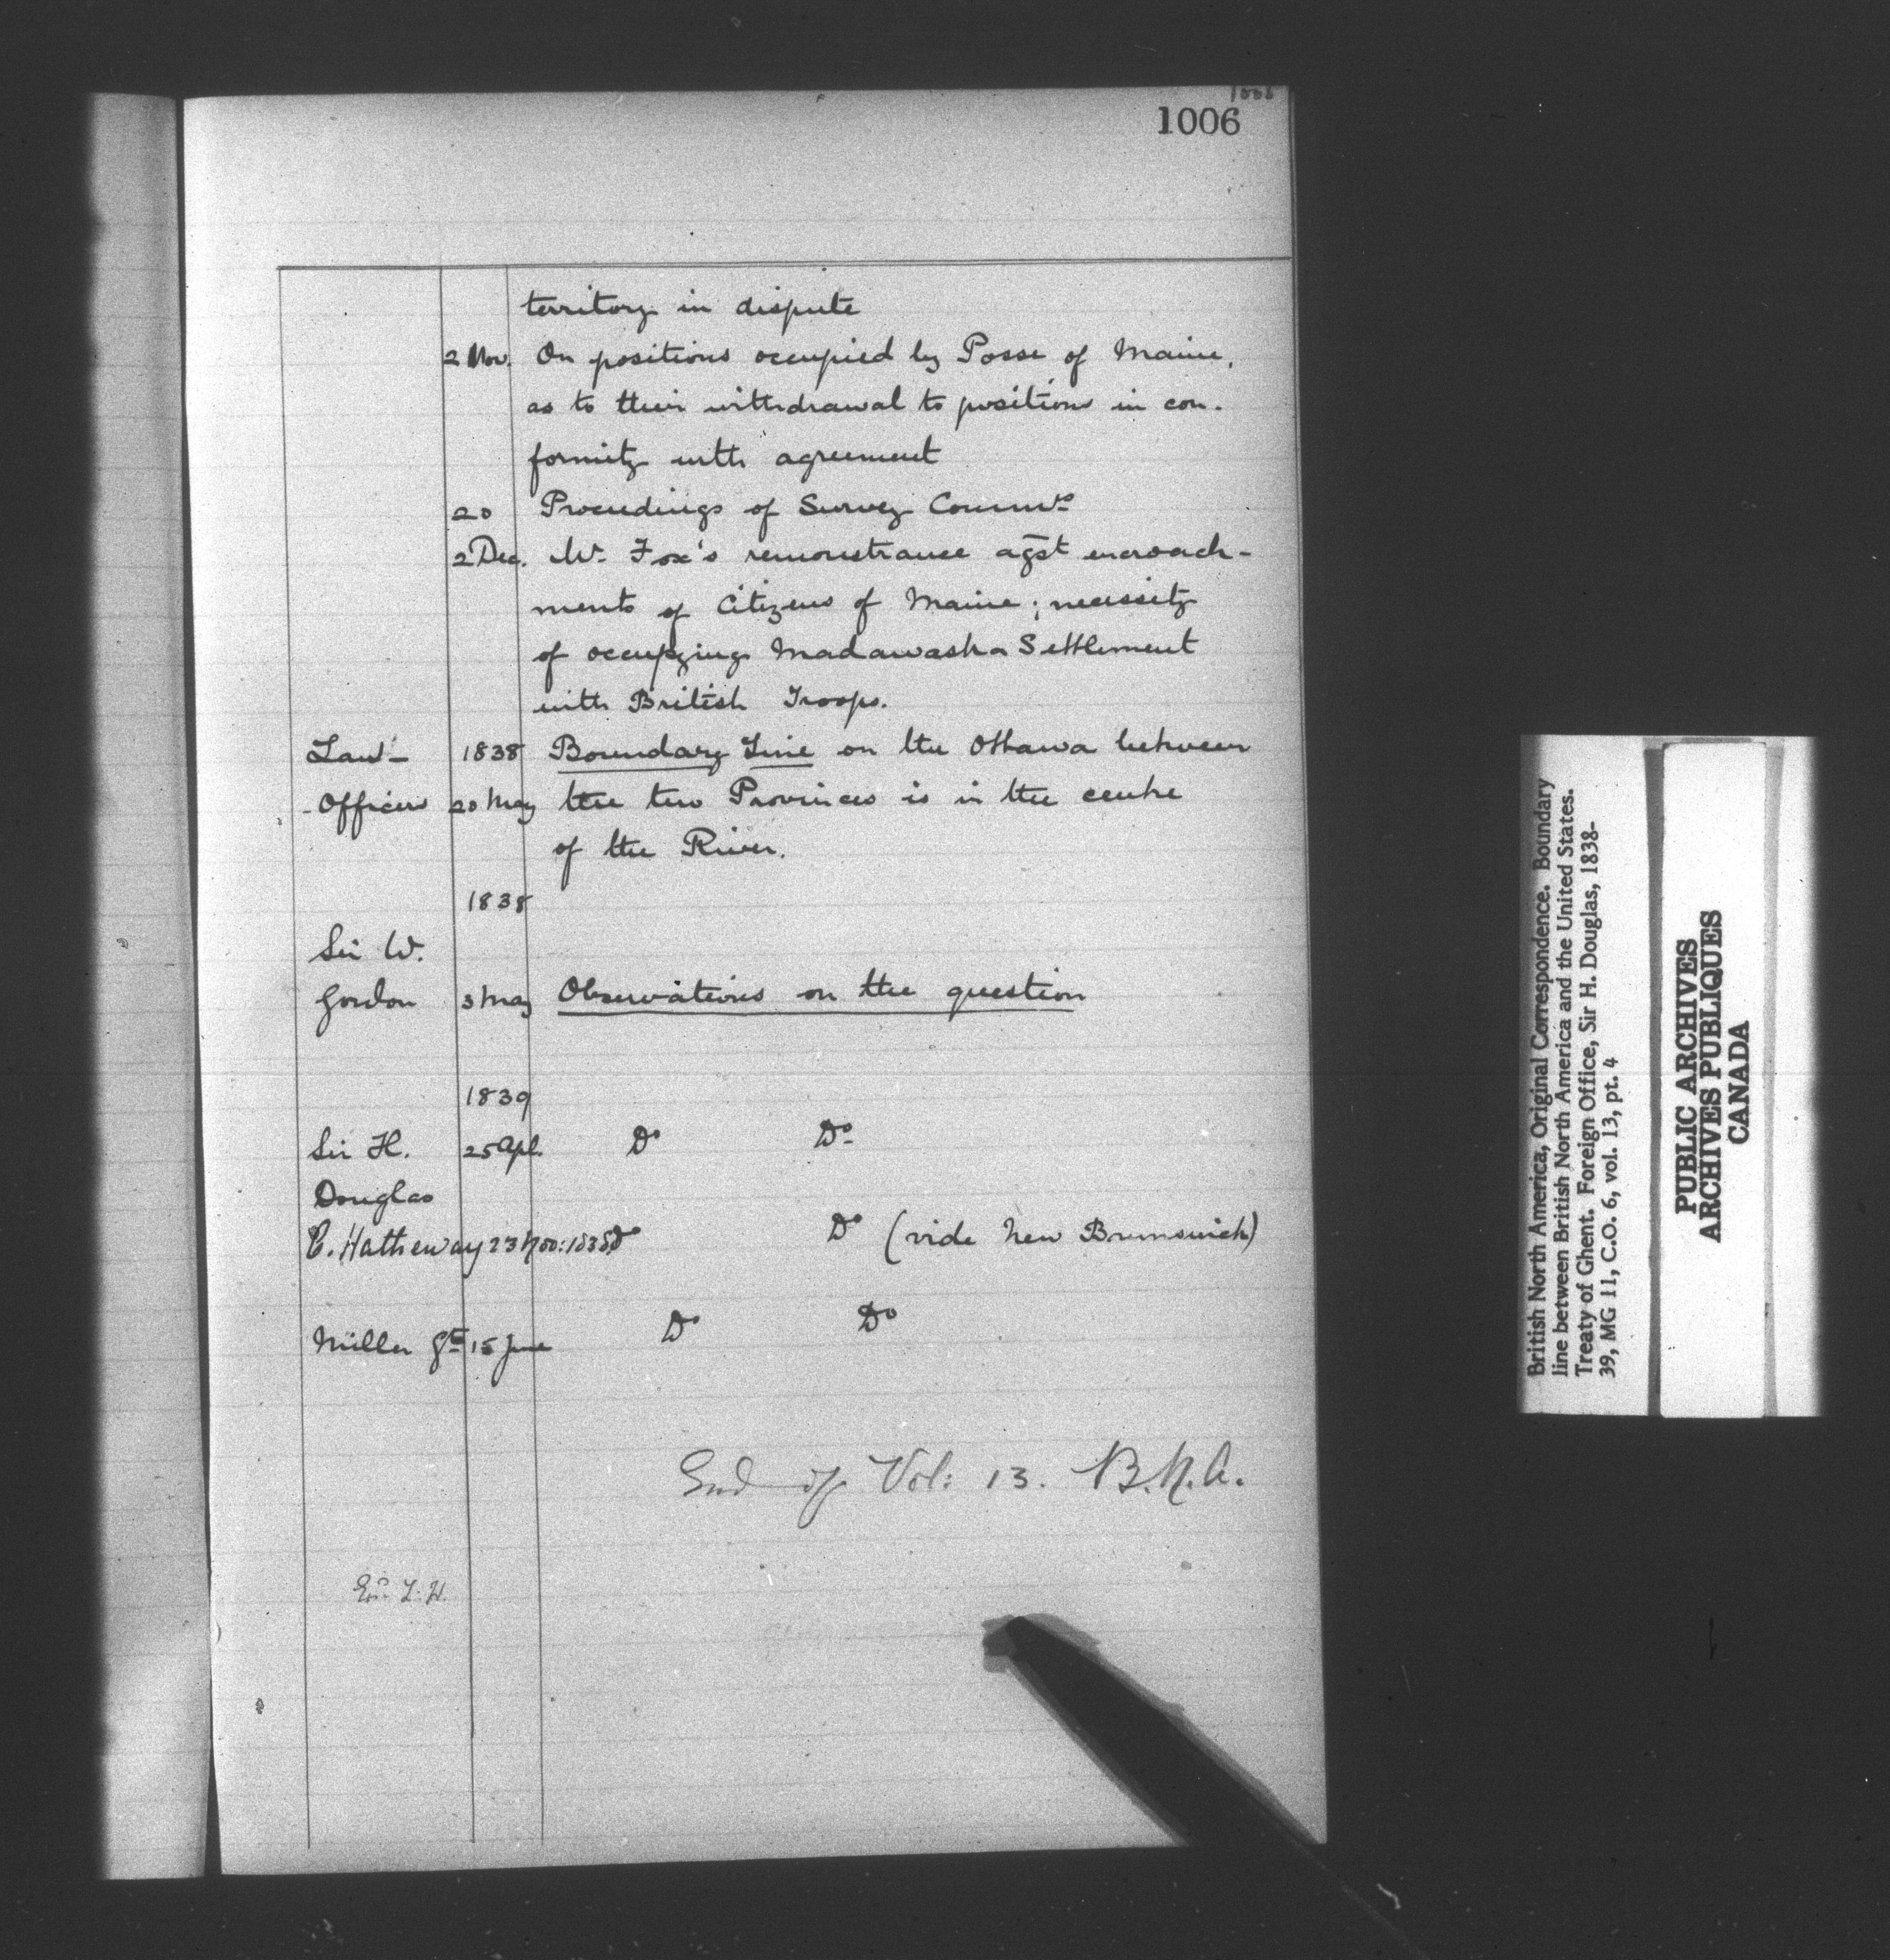 1006
1006
territory in dispute
2 Nov. On positions occupied by Posse of Maine,
as to their withdrawal to positions in con-
formity with agreement
20 Proceedings of Survey Commrs
2 Dec. Mr. Fox's remonstrance agst encroach-
ments of Citizens of Maine; necessity
of occupying Madawaska Settlement
with British Troops.
Law- 1838 Boundary Line on the Ottawa between
-Officers 20 May the two Provinces is in the centre
of the River.
1838
Sir W.
Gordon 3 May Observations on the question
1839
Sir H. 25 Apl. Do Do
Douglas
C. Hatheway 23 Nov: 1838 Do Do (vide New Brunswick)
Miller 15 June Do Do
End of Vol: 13. B.N.A.
British North America, Original Correspondence. Boundary
line between British North America and the United States.
Treaty of Ghent. Foreign Office, Sir H. Douglas, 1838-
39, MG 11, C.O. 6, vol. 13, pt. 4
PUBLIC ARCHIVES
ARCHIVES PUBLIQUES
CANADA